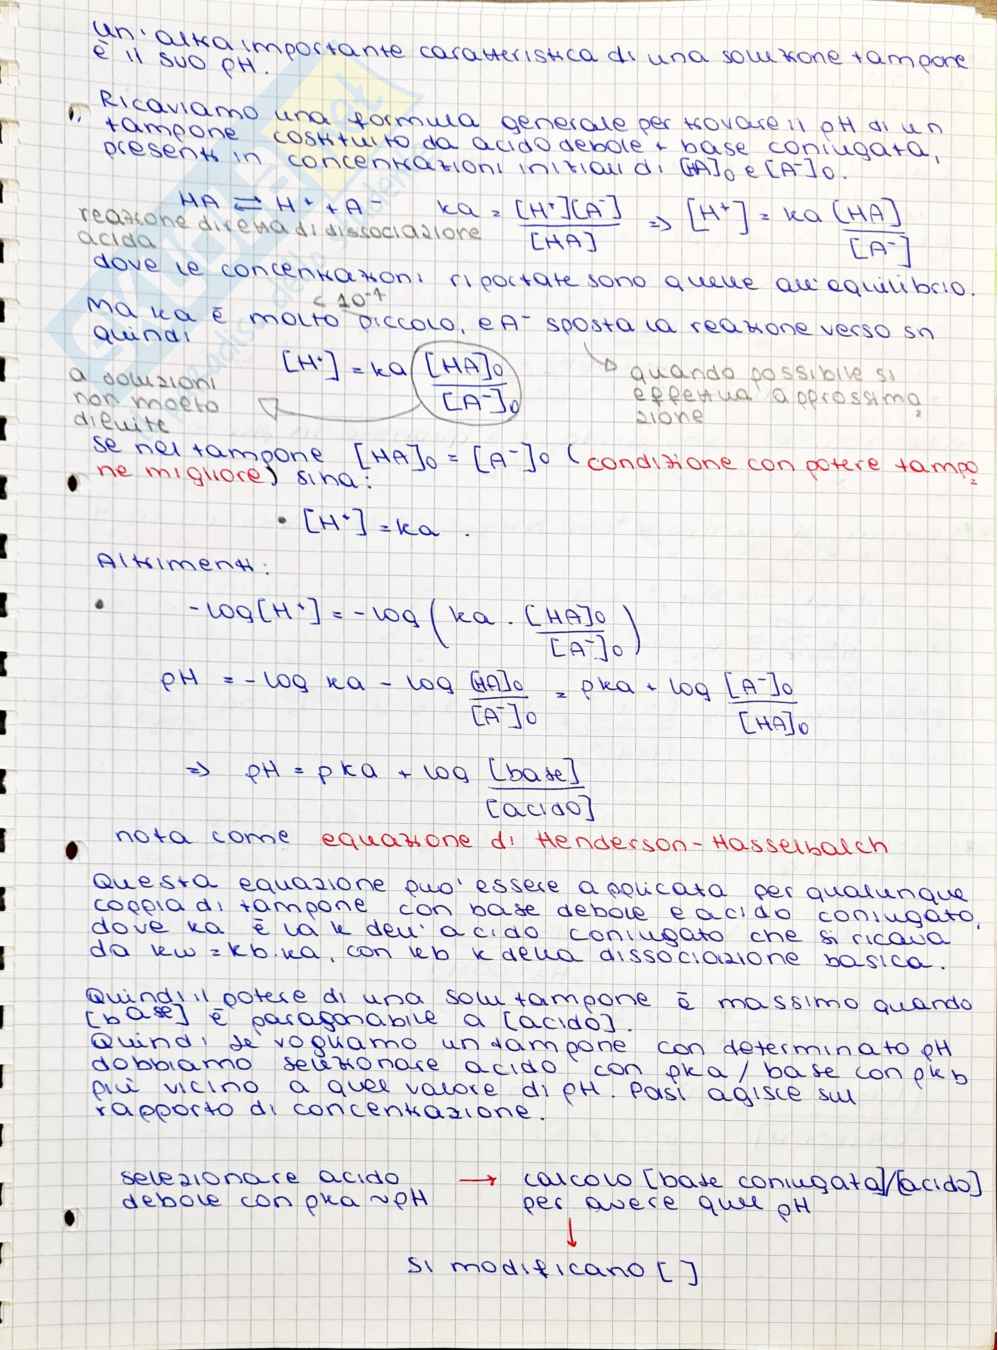 un'altra importante caratteristica di una soluzione tampone
è il suo pH.
Ricaviamo una formula generale per trovare il pH di un
tampone costituito da acido debole + base coniugata,
presenti in concentrazioni iniziali di [HA]₀ e [A⁻]₀.
HA ⇌ H⁺ + A⁻ ka = [H⁺][A⁻] / [HA] => [H⁺] = ka [HA] / [A⁻]
reazione diretta di dissociazione
acida
dove le concentrazioni riportate sono quelle all'equilibrio.
< 10⁻⁴
Ma ka è molto piccolo, e A⁻ sposta la reazione verso sn
quindi
[H⁺] = ka [HA]₀ / [A⁻]₀
quando possibile si
effettua approssima
zione
a soluzioni
non molto
diluite
se nel tampone [HA]₀ = [A⁻]₀ (condizione con potere tampo
ne migliore) si ha:
• [H⁺] = ka .
Altrimenti:
-log[H⁺] = -log (ka . [HA]₀ / [A⁻]₀)
pH = -log ka - log [HA]₀ / [A⁻]₀ = pka + log [A⁻]₀ / [HA]₀
=> pH = pka + log [base] / [acido]
nota come equazione di Henderson-Hasselbalch
Questa equazione puo' essere applicata per qualunque
coppia di tampone con base debole e acido coniugato,
dove ka è la k dell'acido coniugato che si ricava
da kw = kb.ka, con kb k della dissociazione basica.
Quindi il potere di una solu tampone è massimo quando
[base] è paragonabile a [acido].
Quindi se vogliamo un tampone con determinato pH
dobbiamo selezionare acido con pka / base con pkb
più vicino a quel valore di pH. Poi si agisce sul
rapporto di concentrazione.
selezionare acido → calcolo [base coniugata]/[acido]
debole con pka ~ pH per avere quel pH
↓
si modificano [ ]